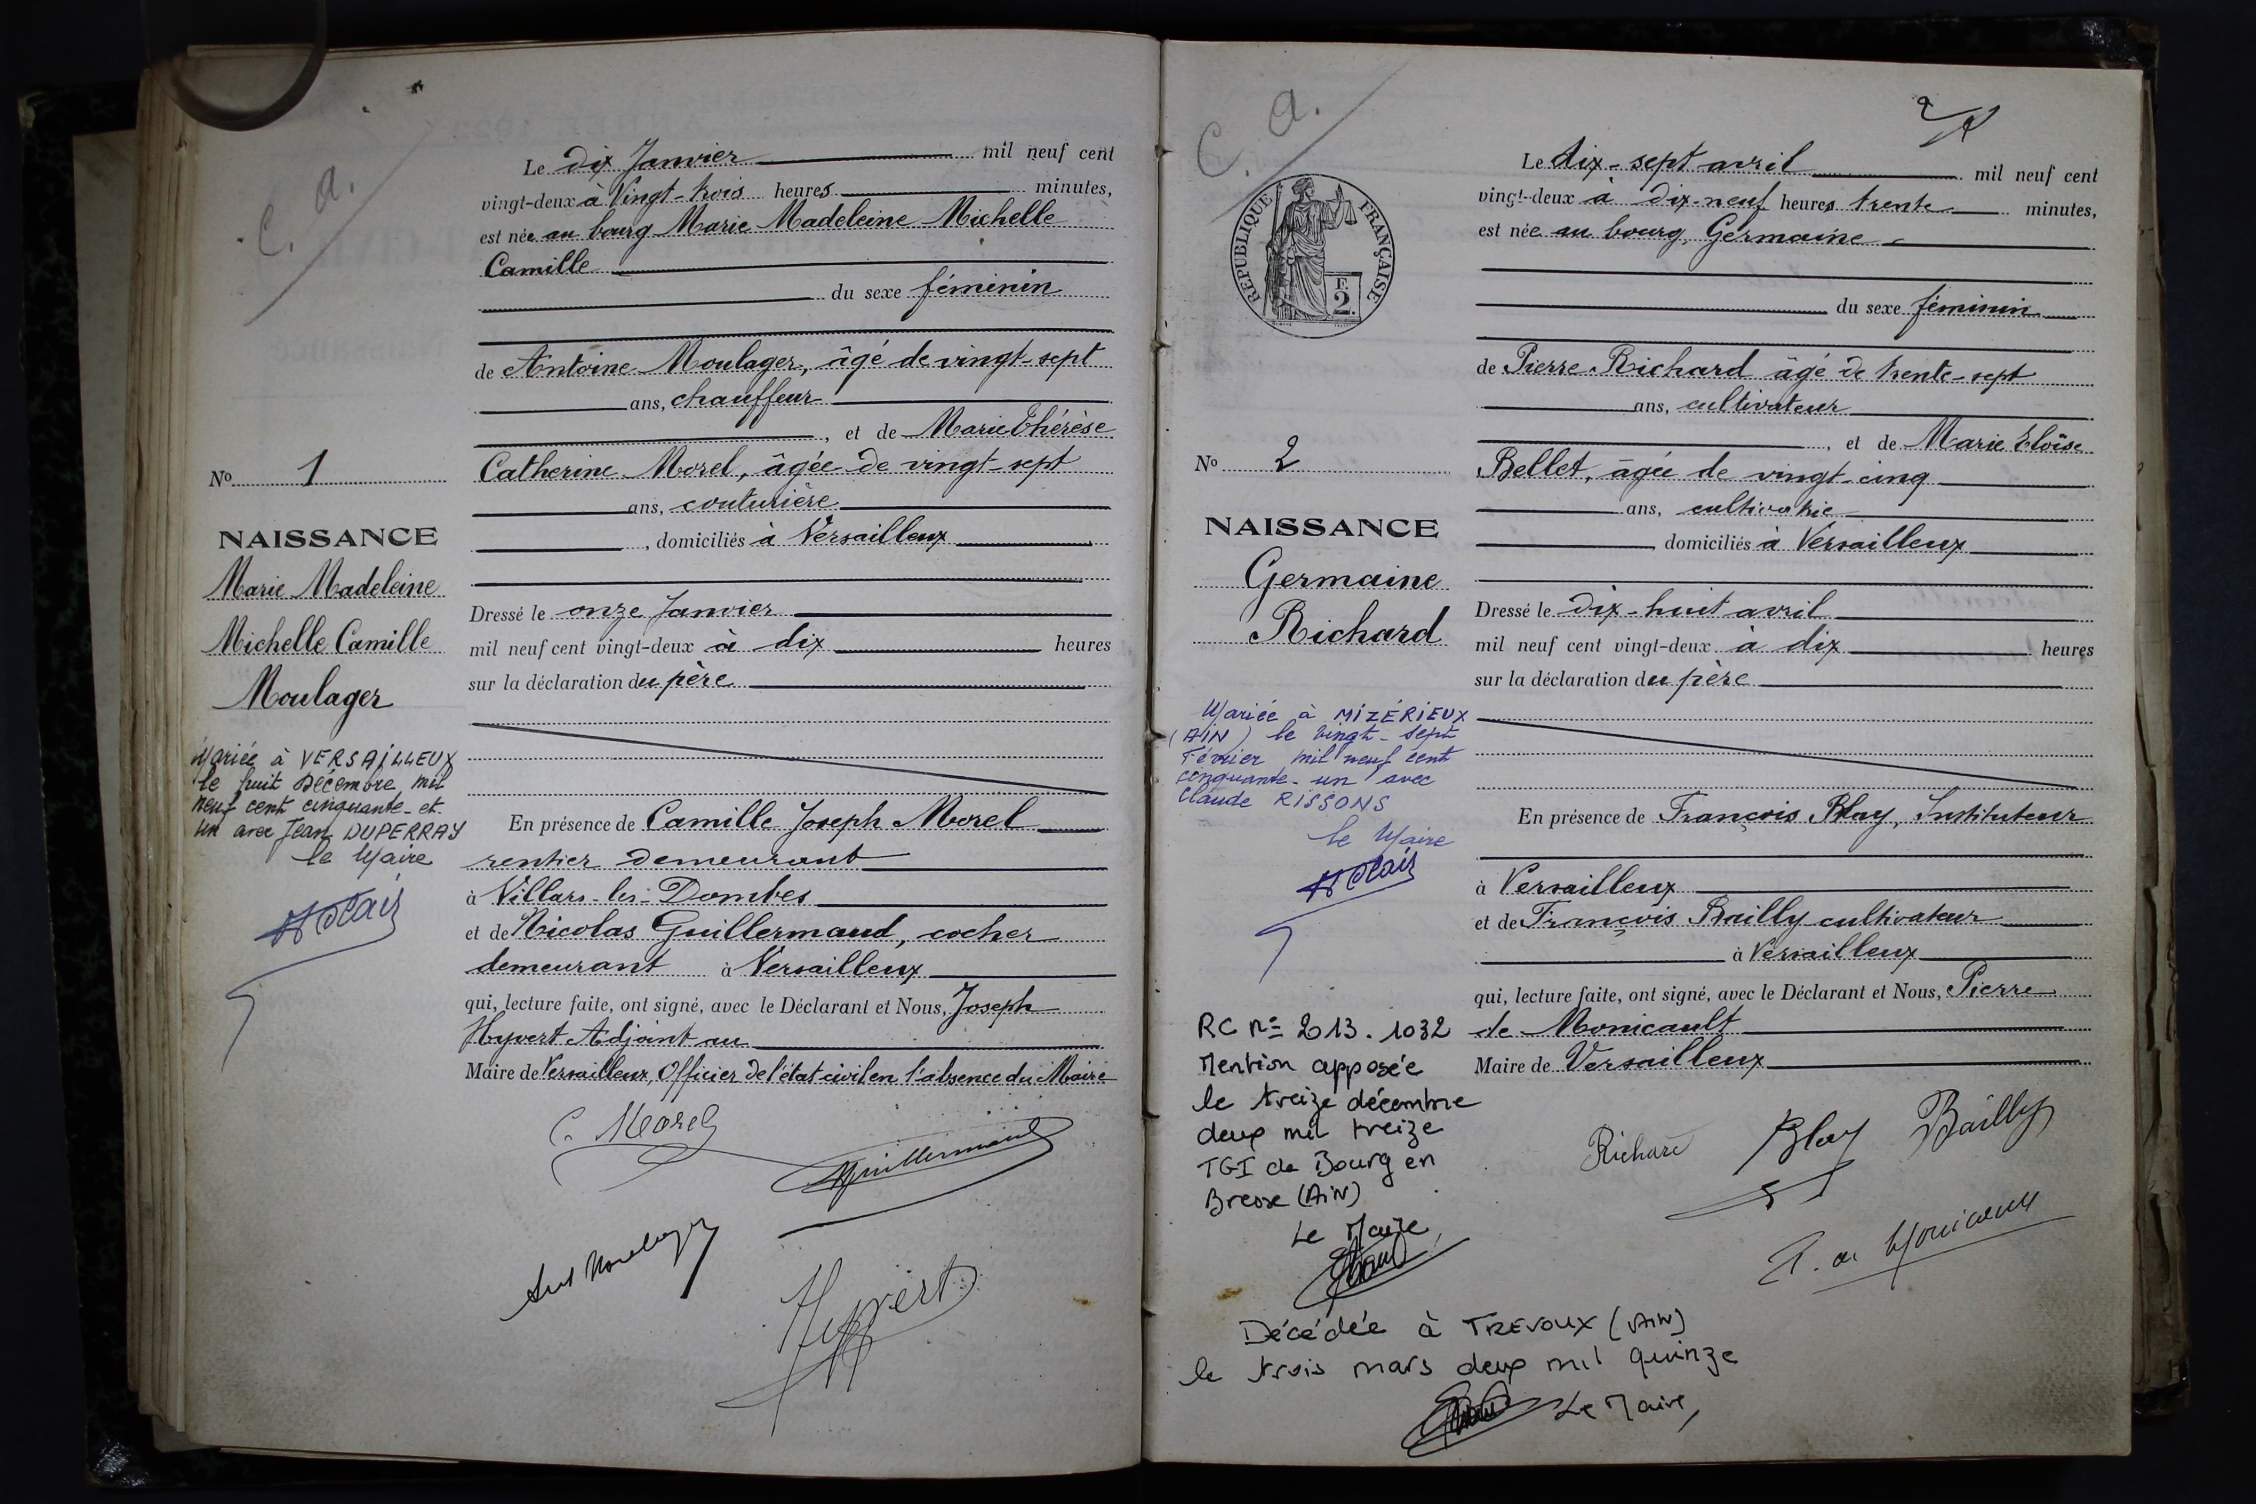 C. a.
Le dix Janvier mil neuf cent
vingt-deux à Vingt-trois heures minutes,
est née au bourg Marie Madeleine Michelle
Camille
du sexe féminin
de Antoine Moulager, âgé de vingt-sept
ans, chauffeur
, et de Marie Thérèse
Catherine Morel, âgée de vingt-sept
ans, couturière
, domiciliés à Versailleux
Dressé le onze Janvier
mil neuf cent vingt-deux à dix heures
sur la déclaration du père
En présence de Camille Joseph Morel
rentier demeurant
à Villars-les-Dombes
et de Nicolas Guillermaud, cocher
demeurant à Versailleux
qui, lecture faite, ont signé, avec le Déclarant et Nous, Joseph
Hyvert Adjoint au
Maire de Versailleux, Officier de l'état civil en l'absence du Maire
C. Morel
Guillermaud
Ant Moulager
Hyvert
No 1
NAISSANCE
Marie Madeleine
Michelle Camille
Moulager
Mariée à VERSAILLEUX
le huit Décembre mil
neuf cent cinquante-et-
un avec Jean DUPERRAY
le Maire
C. a.
2
REPUBLIQUE FRANÇAISE
F.
2.
Le dix-sept avril mil neuf cent
vingt-deux à dix-neuf heures trente minutes,
est née au bourg, Germaine
du sexe féminin
de Pierre Richard âgé de trente-sept
ans, cultivateur
, et de Marie Eloïse
Bellet, âgée de vingt-cinq
ans, cultivatrice
domiciliés à Versailleux
Dressé le dix-huit avril
mil neuf cent vingt-deux à dix heures
sur la déclaration du père
En présence de François Blay, Instituteur
à Versailleux
et de François Bailly cultivateur
à Versailleux
qui, lecture faite, ont signé, avec le Déclarant et Nous, Pierre
de Monicault
Maire de Versailleux
Richard Blay Bailly
P. de Monicault
No 2
NAISSANCE
Germaine
Richard
Mariée à MIZÉRIEUX
(AIN) le vingt-sept
Février mil neuf cent
cinquante-un avec
Claude RISSONS
le Maire
RC n= 213.1032
Mention apposée
le treize décembre
deux mil treize
TGI de Bourg en
Bresse (AIN)
Le Maire,
Décédée à TREVOUX (AIN)
le trois mars deux mil quinze
Le Maire,